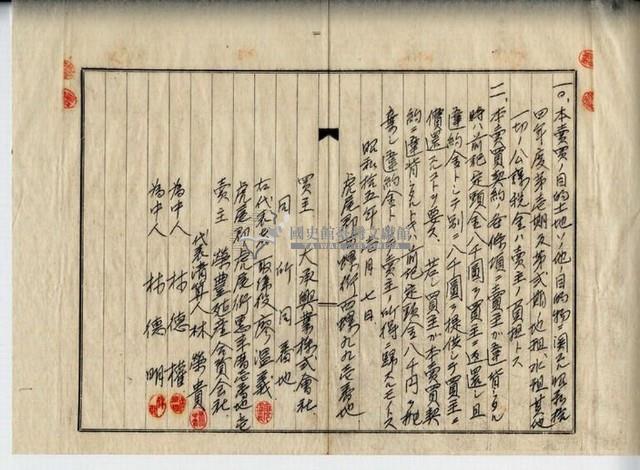 一〇、本賣買ノ目的土地ノ他ノ目的物ニ関スル昭和拾
四年度第壱期及第弐期ノ地租、水租其他
一切ノ公課税金ハ賣主ノ負担トス
一一、本賣買契約ノ各條項ニ賣主ガ違背シタル
時ハ前記定頭金八千圓ヲ買主ニ返還シ且
違約金トシテ別ニ八千圓ヲ提供シテ買主ニ
償還スルコトヲ要ス 若シ買主ガ本賣買契
約ニ違背シタルトキハ前記定頭金八千円ヲ抛
棄シ違約金トシテ賣主ノ所得ニ歸スルモノトス
昭和拾五年 月七日
虎尾郡西螺街西螺九九壱番地
買主 大承興業株式會社
同所同番地
右代表者取締役 廖溫義
虎尾郡虎尾街惠來厝 番地
賣主 榮豊殖産合資會社
代表清算人 林榮貴
為中人 林德權
為中人 林德明
國史館臺灣文獻館